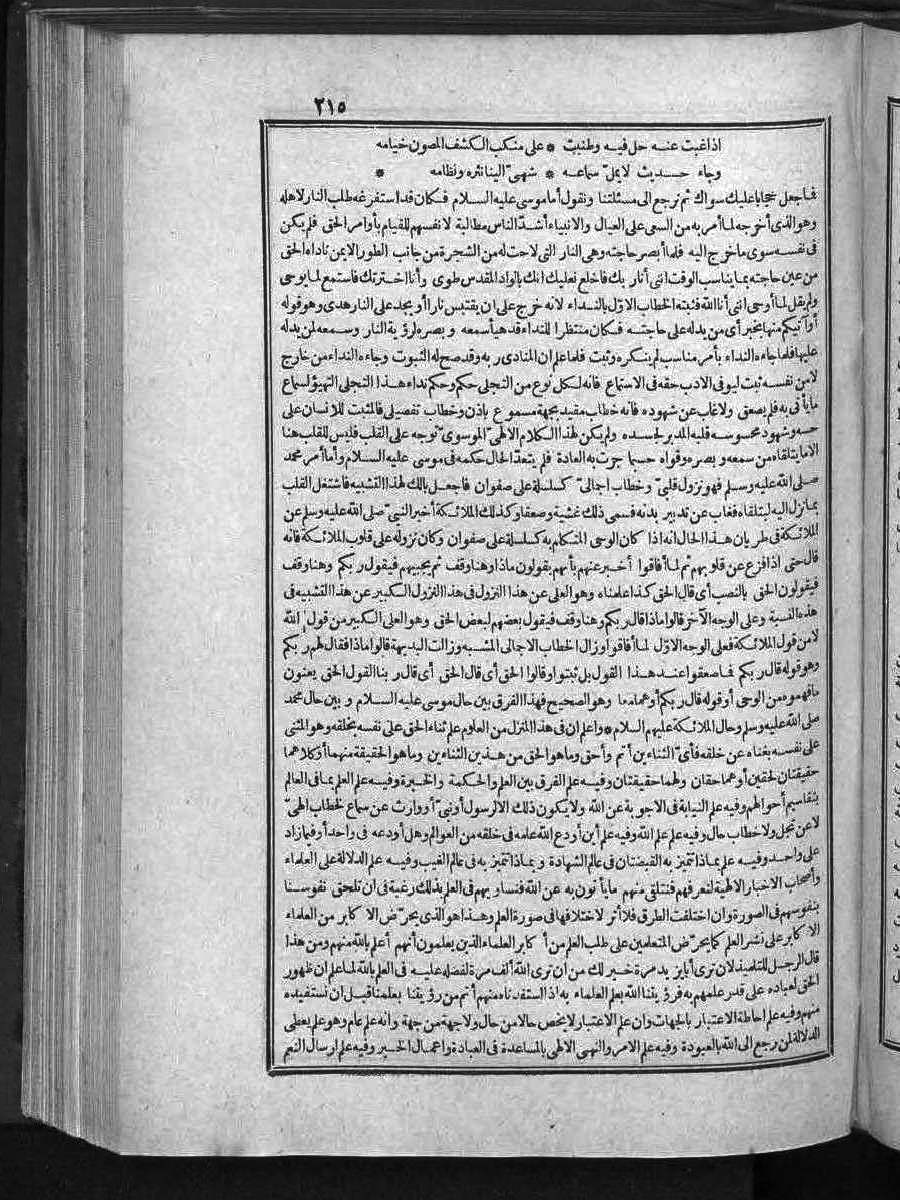 ٢١٥
اذا غبت عنه حل فيه وطنبت * على منكب الكشف المصون خيامه
وجاء حديث لا يمل سماعه * شهىّ الينا نثره ونظامه *
فاجعل حجابا عليك سواك ثم ترجع الى مسئلتنا ونقول أما موسى عليه السلام فكان قد استفرغه طلب النار لاهله
وهو الذى أخرجه لما أمر به من السعى على العيال والانبياء أشدّ الناس مطالبة لانفسهم للقيام بأوامر الحق فلم يكن
فى نفسه سوى ما خرج اليه فلما أبصر حاجته وهى النار التى لاحت له من الشجرة من جانب الطور الايمن ناداه الحق
من عين حاجته بما يناسب الوقت انى أنا ربك فاخلع نعليك انك بالواد المقدس طوى وأنا اخترتك فاستمع لما يوحى
ولم يقل لما أوحى انى أنا الله فثبته الخطاب الاوّل بالنداء لانه خرج على ان يقتبس نارا أو يجد على النار هدى وهو قوله
أو آتيكم منها بخبر أى من يدله على حاجته فكان منتظرا للنداء قد هيأ سمعه وبصره لرؤية النار وسمعه لمن يدله
عليها فلما جاءه النداء بأمر مناسب لم ينكره وثبت فلما علم ان المنادى ربه وقد صح له الثبوت وجاءه النداء من خارج
لا من نفسه ثبت ليوفى الادب حقه فى الاستماع فانه لكل نوع من التجلى حكم وحكم نداء هذا التجلى التهيؤ لسماع
ما يأتى به فلم يصعق ولا غاب عن شهوده فانه خطاب مقيد بجهة مسموع باذن وخطاب تفصيلى فالمثبت للانسان على
حسه وشهود محسوسه قلبه المدبر لجسده ولم يكن لهذا الكلام الالهىّ الموسوىّ توجه على القلب فليس للقلب هنا
الا ما يتلقاه من سمعه وبصره وقواه حسبما جرت به العادة فلم يتعدّ الحال حكمه فى موسى عليه السلام وأما أمر محمد
صلى الله عليه وسلم فهو نزول قلبىّ وخطاب اجمالىّ كسلسلة على صفوان فاجعل بالك لهذا التشبيه فاشتغل القلب
بما نزل اليه ليتلقاه فغاب عن تدبير بدنه فسمى ذلك غشية وصعقا وكذلك الملائكة أخبر النبىّ صلى الله عليه وسلم عن
الملائكة فى طريان هذا الحال انه اذا كان الوحى المتكلم به كسلسلة على صفوان وكان نزوله على قلوب الملائكة فانه
قال حتى اذا فزع عن قلوبهم ثم لما أفاقوا أخبر عنهم بأنهم يقولون ماذا وهنا وقف ثم يجيبهم فيقول ربكم وهنا وقف
فيقولون الحق بالنصب أى قال الحق كذا علمناه وهو العلى عن هذا النزول فى هذا النزول الكبير عن هذا التشبيه فى
هذه النسبة وعلى الوجه الآخر قالوا ماذا قال ربكم وهنا وقف فيقول بعضهم لبعض الحق وهو العلى الكبير من قول الله
لا من قول الملائكة فعلى الوجه الاوّل لما أفاقوا وزال الخطاب الاجمالى المشبه وزالت البديهة قالوا ماذا فقال لهم ربكم
وهو قوله قال ربكم فما صعقوا عند هذا القول بل ثبتوا وقالوا الحق أى قال الحق أى قال ربنا القول الحق يعنون
ما فهموه من الوحى أو قوله قال ربكم أو هما معا وهو الصحيح فهذا الفرق بين حال موسى عليه السلام وبين حال محمد
صلى الله عليه وسلم وحال الملائكة عليهم السلام * واعلم ان فى هذا المنزل من العلوم علم ثناء الحق على نفسه بخلقه وهو المثنى
على نفسه بغناه عن خلقه فأىّ الثناءين أتم وأحق وما هو الحق من هذين الثناءين وما هو الحقيقة منهما أو كلاهما
حقيقتان لحقين أو هما حقان ولهما حقيقتان وفيه علم الفرق بين العلم والحكمة والخبرة وفيه علم العلم بما فى العالم
بتقاسيم أحوالهم وفيه علم النيابة فى الاجوبة عن الله ولا يكون ذلك الا لرسول أو نبىّ أو وارث عن سماع لخطاب الهىّ
لا عن تجل ولا خطاب حال وفيه علم علم الله وفيه علم أين أودع الله علمه فى خلقه من العوالم وهل أودعه فى واحد أو فيما زاد
على واحد وفيه علم بماذا تتميز به القبضتان فى عالم الشهادة وبماذا تتميز به فى عالم الغيب وفيه علم الدلالة على العلماء
وأصحاب الاخبار الالهية لنعرفهم فنتلقى منهم ما يأتون به عن الله فنساويهم فى العلم بذلك رغبة فى ان تلحق نفوسنا
بنفوسهم فى الصورة وان اختلفت الطرق فلا أثر لاختلافها فى صورة العلم وهذا هو الذى يحرّض الاكابر من العلماء
الاكابر على نشر العلم كما يحرّض المتعلمين على طلب العلم من أكابر العلماء الذين يعلمون أنهم أعلم بالله منهم ومن هذا
قال الرجل للتلميذ لان ترى أبا يزيد مرة خير لك من أن ترى الله ألف مرة لفضله عليه فى العلم بالله لما علم ان ظهور
الحق لعباده على قدر علمهم به فرؤيتنا الله بعلم العلماء به اذا استفدناه منهم أتم من رؤيتنا بعلمنا قبل ان نستفيده
منهم وفيه علم احاطة الاعتبار بالجهات وان علم الاعتبار لا يخص حالا من حال ولا جهة من جهة وانه علم عام وهو علم يعطى
الدلالة لمن رجع الى الله بالعبودة وفيه علم الامر والنهى الالهى بالمساعدة فى العبادة واعمال الخير وفيه علم ارسال النعم